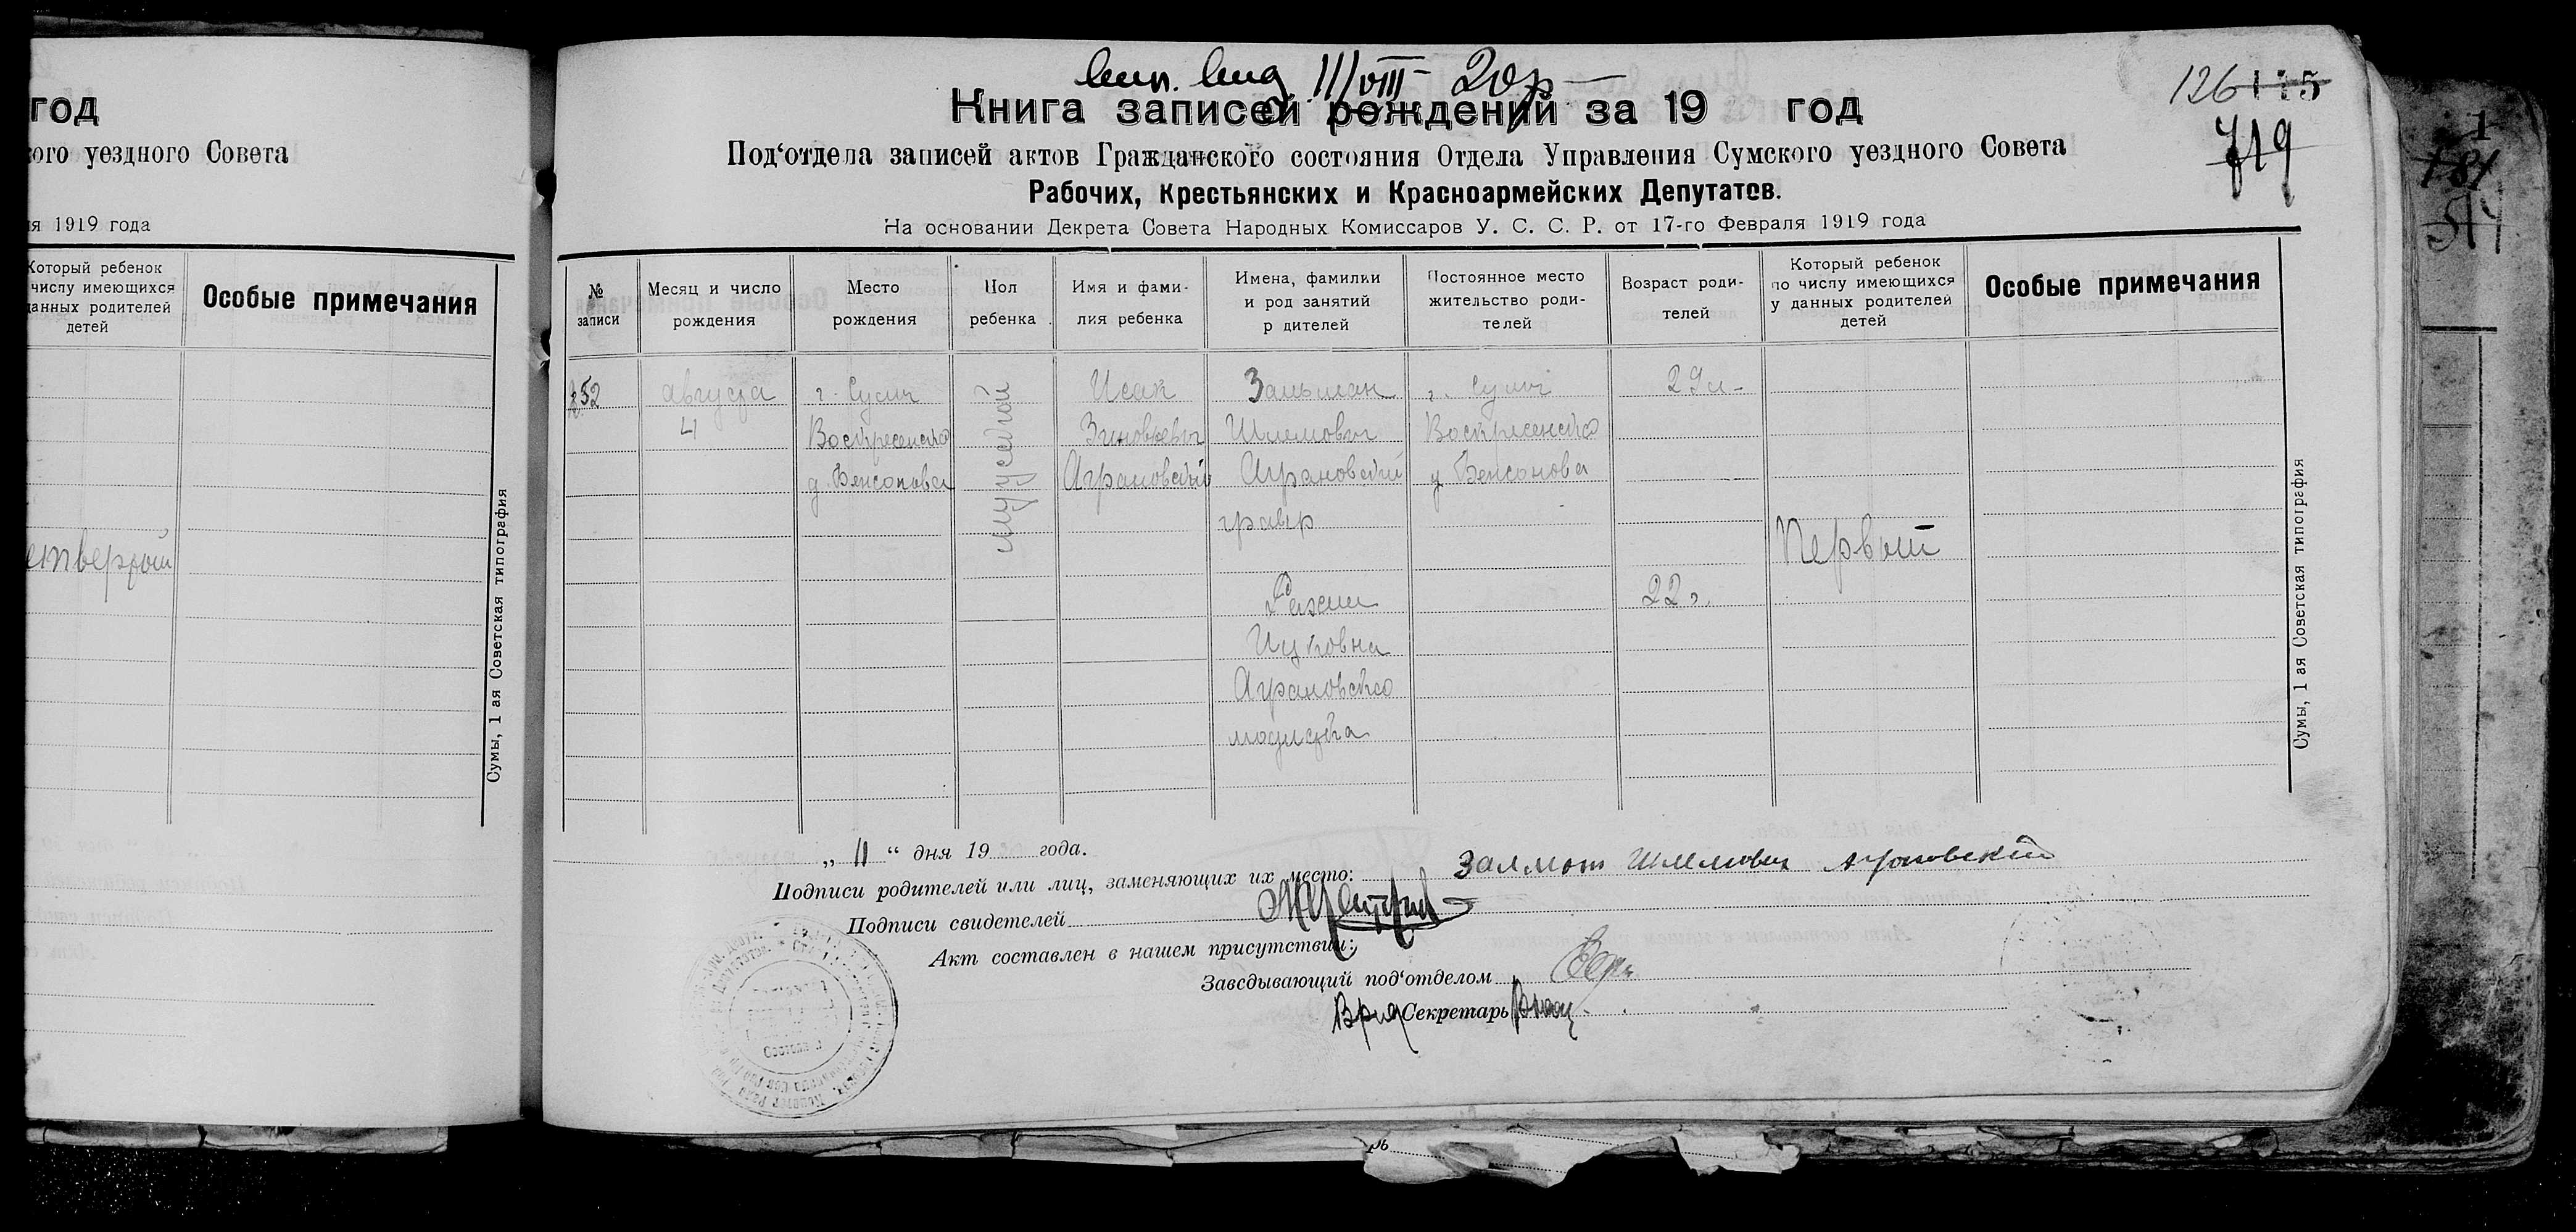 год
ого уездного Совета
я 1919 года
Который ребенок
числу имеющихся
данных родителей
детей
Особые примечания
етвертый
Сумы, 1 ая Советская типография
126 115
719
Книга записей рождений за 19 год
Под‘отдела записей актов Гражданского состояния Отдела Управления Сумского уездного Совета
Рабочих, Крестьянских и Красноармейских Депутатов.
На основании Декрета Совета Народных Комиссаров У. С. С. Р. от 17-го Февраля 1919 года
№
записи
Месяц и число
рождения
Место
рождения
Пол
ребенка
Имя и фами-
лия ребенка
Имена, фамилии
и род занятий
р дителей
Постоянное место
жительство роди-
телей
Возраст роди-
телей
Который ребенок
по числу имеющихся
у данных родителей
детей
Особые примечания
252
августа
4
г. Сумы
Воскресенская
д. Бенсонова
мужской
Исак
Зиновьевич
Аграновский
Зальман
Шлемович
Аграновский
гравер
Рахиль
Ицковна
Аграновская
модистка
г. Сумы
Воскресенская
д. Бенсонова
29 л.
22 г.
Первый
Сумы, 1 ая Советская типография
„ 11 “ дня 19 года.
Подписи родителей или лиц, заменяющих их место: Залман Шлемович Аграновский
Подписи свидетелей
Акт составлен в нашем присутствии:
Заведывающий под‘отделом
Врид Секретарь
1
181